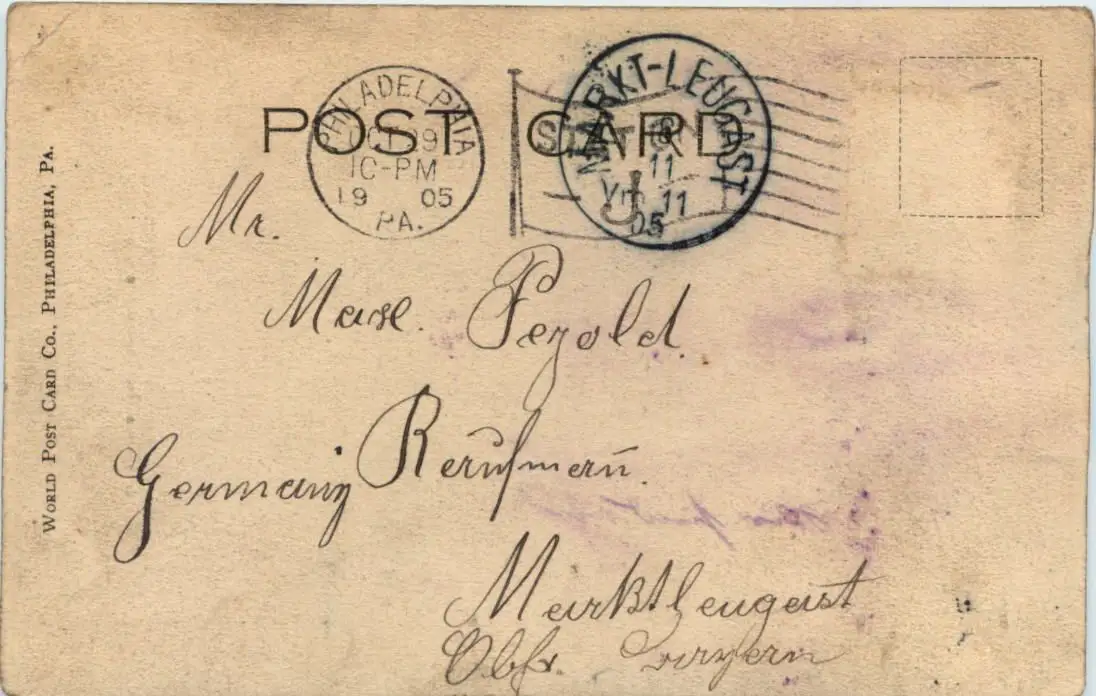 POST CARD
PHILADELPHIA
10-PM
1905
PA.
MARKT-LEUGAST
8
11
Vm 11
05
WORLD POST CARD CO., PHILADELPHIA, PA.
Mr.
Pezold.
Germany Kaufmann.
Marktleugast
Obfr. Bayern